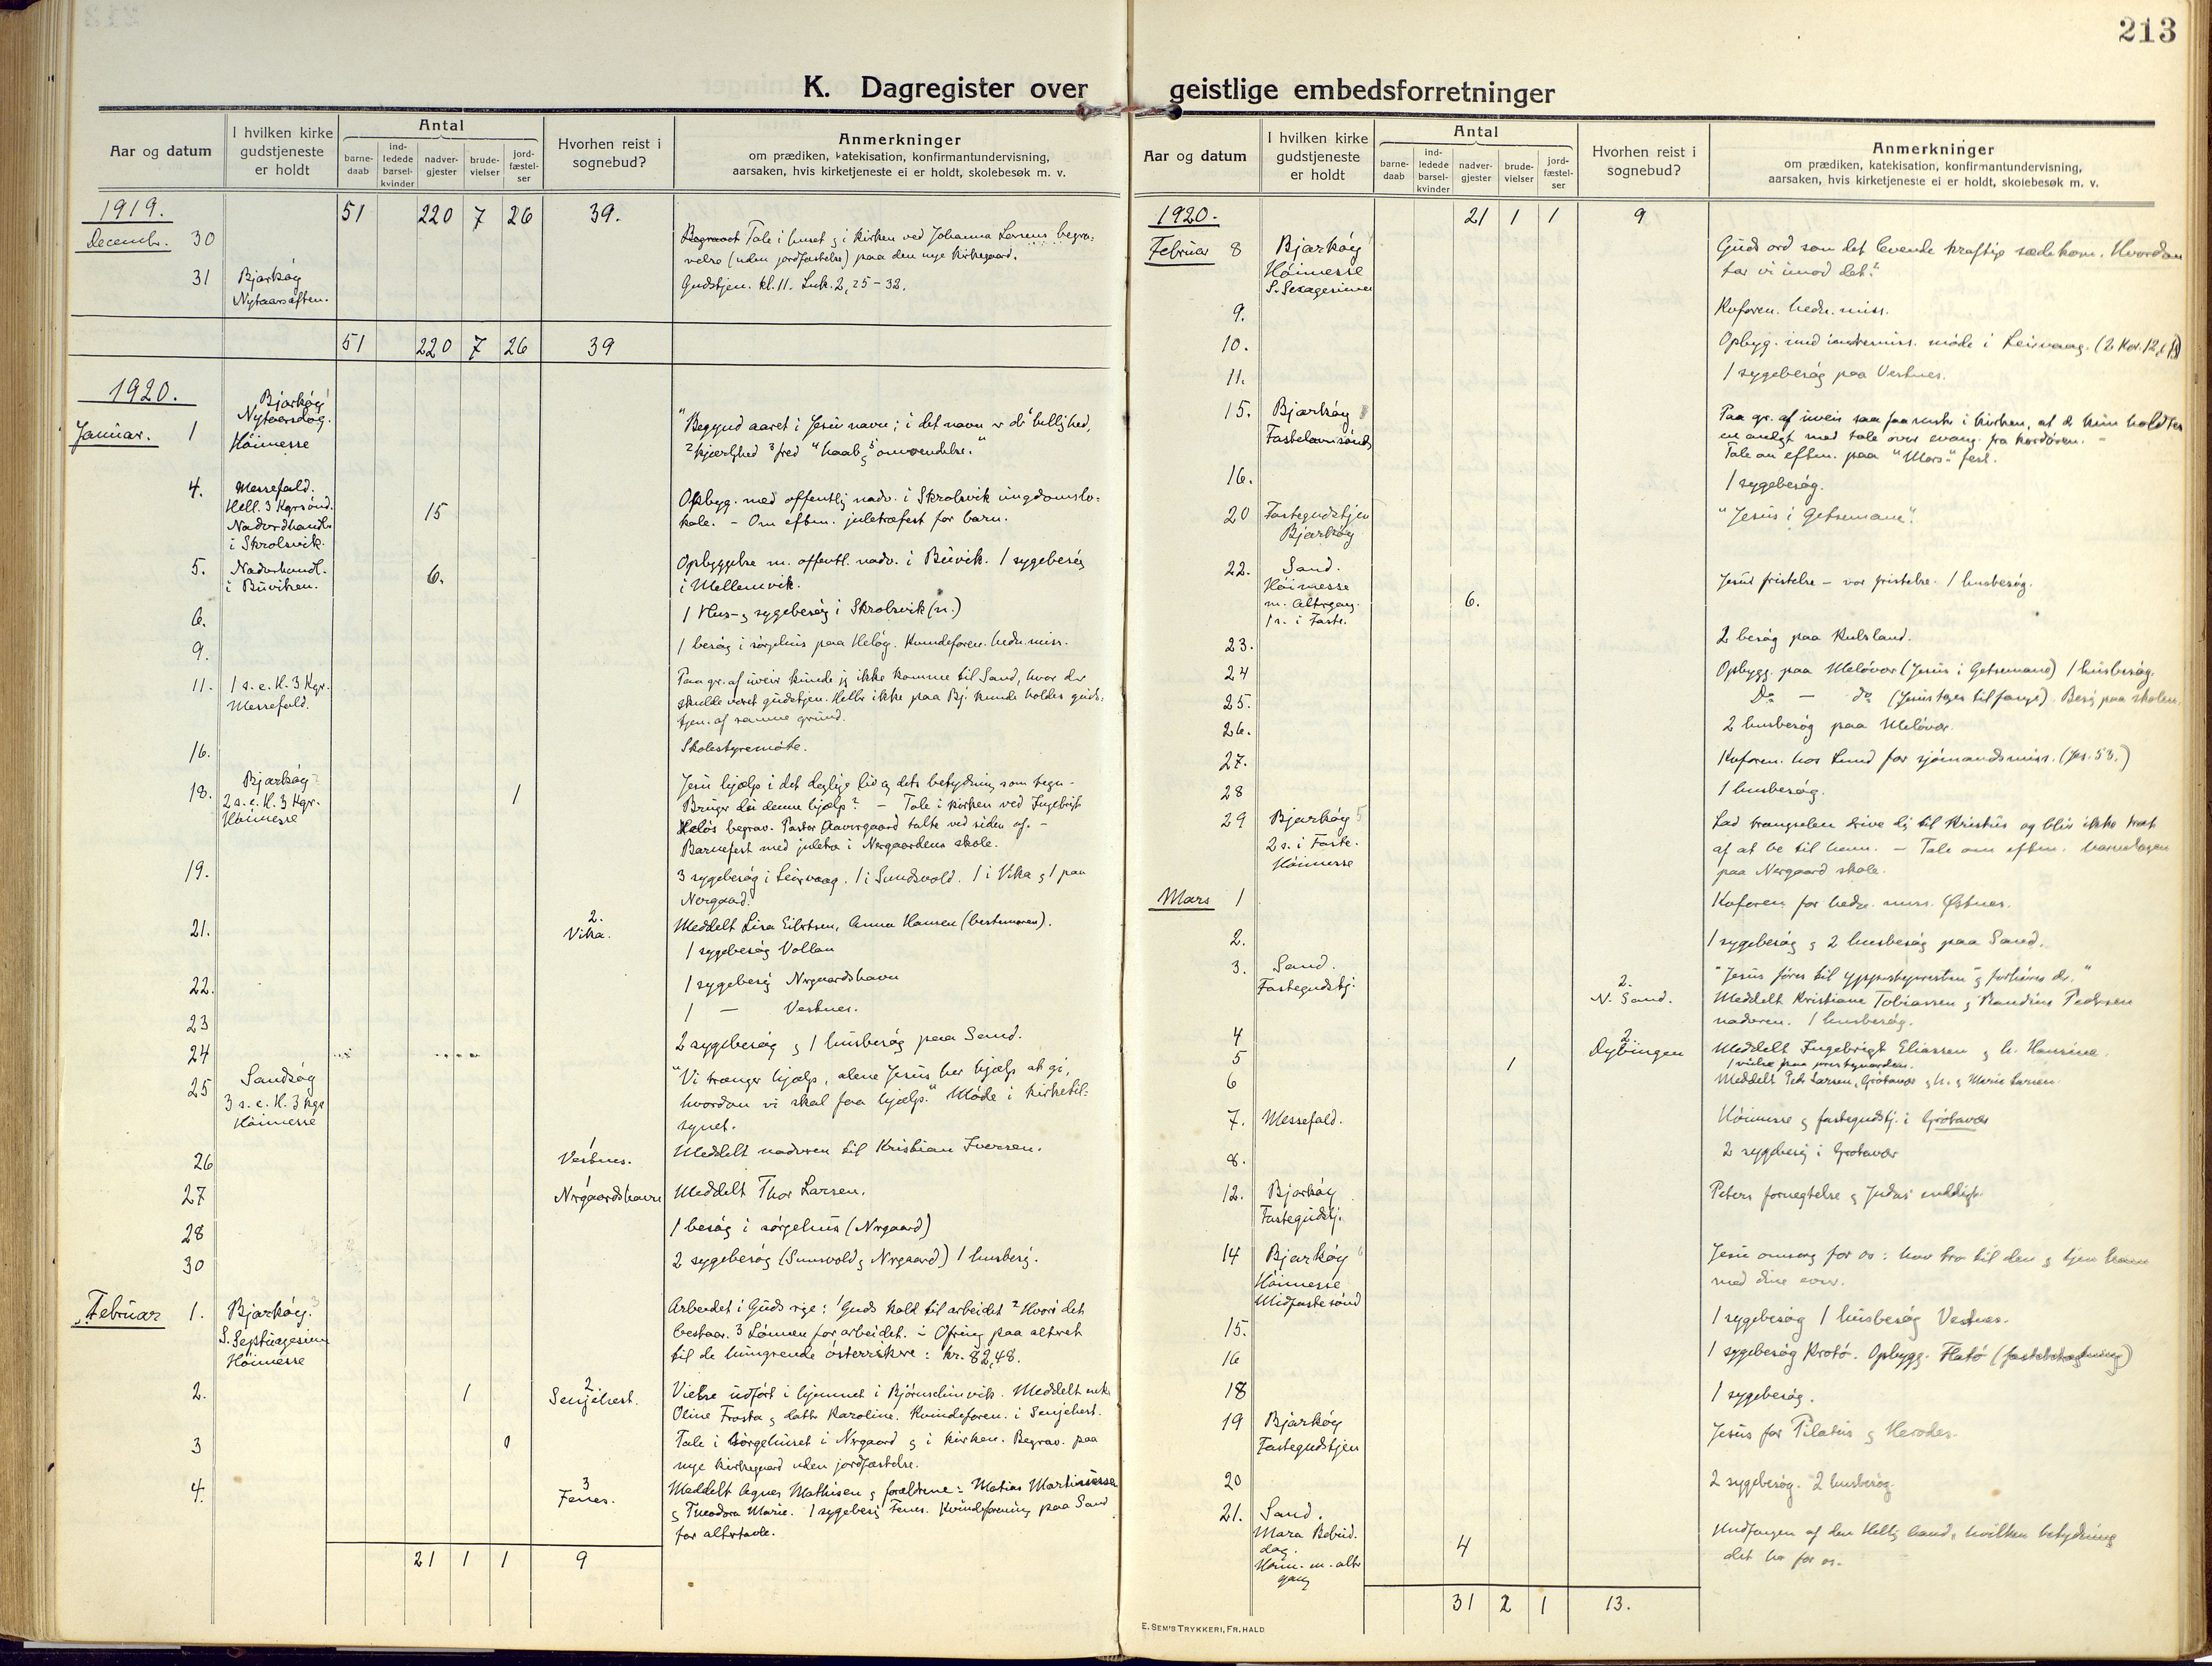 213
K. Dagregister over geistlige embedsforretninger
Aar og datum
I hvilken kirke
gudstjeneste
er holdt
Antal
barne-
daab
ind-
ledede
barsel-
kvinder
nadver-
gjester
brude-
vielser
jord-
fæstel-
ser
Hvorhen reist i
sognebud?
Anmerkninger
om prædiken, katekisation, konfirmantundervisning,
aarsaken, hvis kirketjeneste ei er holdt, skolebesøk m. v.
1919. 51 220 7 26 39.
Decembr. 30 Tale i huset og i kirken ved Johanna begra-
velse (uden jordfæstelse) paa den nye kirkegaard.
31 Bjarkøy Gudstjen. kl. 11. Luk. 2, 25-32.
Nytaarsaften.
51 220 7 26 39
1920.
Januar. 1 Bjarkøy
Nytaarsdag.
Høimesse
"Begynd aaret i Jesu navn; i det navn er der ¹hellighed,
²kjærlighed ³fred ⁴haab og ⁵omvendelse."
4. Messefald.
Hell. 3 Kgrsønd.
Nadverdhandl.
i Skrolsvik.
15
Opbyg. med offentlig nadv. i Skrolsvik ungdomslo-
kale. - Om eftm. juletræfest for barn.
5. Nadverhandl.
i Buviken.
6.
Opbyggelse m. offentl. nadv. i Buvik. 1 sygebesøg
i Mellemvik.
6. 1 Hus- og sygebesøg i Skrolsvik (n.)
9. 1 besøg i sørgehus paa Meløy. Kvindeforen. hedn. miss.
11. 1 s. e. H. 3 Kgr.
Messefald.
Paa gr. af uveir kunde jeg ikke komme til Sand, hvor der
skulde været gudstjen. Heller ikke paa Bj. kunde holdes guds-
tjen. af samme grund.
16. Skolestyremøte.
18. Bjarkøy
2 s. e. H. 3 Kgr.
Høimesse
1
Jesu hjælp i det daglige liv og dets betydning som tegn -
Bruger du denne hjælp? - Tale i kirken ved Ingebrigt
begrav. Pastor talte ved siden af. -
Barnefest med juletræ i Nergaardens skole.
19. 3 sygebesøg i Leirvaag. 1 i Sundsvold. 1 i Vika og 1 paa
Nergaard.
21. 2.
Vika.
Meddelt Lisa Eilertsen, Anna Hansen (bestemoren).
1 sygebesøg Vollan
22. 1 sygebesøg Nergaardshavn
23 1 — Vestnes.
24 2 sygebesøg og 1 husbesøg paa Sand.
25 Sandsøy
3 s. e. H. 3 kgr
Høimesse
"Vi trænger hjælp, alene Jesus her hjælp at gi,
hvordan vi skal faa hjælp." Møde i kirketil-
synet.
26 1
Vestnes.
Meddelt nadveren til Kristian Iversen.
27 1
Nergaardshavn
Meddelt Thor Larsen.
28 1 besøg i sørgehus (Nergaard)
30 2 sygebesøg (Sunsvold og Nergaard) 1 husbesøg.
Februar 1. Bjarkøy.
S. Septuagesima
Høimesse
Arbeidet i Guds rige: ¹Guds kald til arbeidet ²Hvori det
bestaar. ³Lønnen for arbeidet. - Ofring paa alteret
til de hungrende østerrikere: kr. 82,48.
2. 1 2.
Senjehest.
Vielse udført i hjemmet i Meddelt enke
Oline Frosta og datter Karoline. Kvindeforen. i Senjehest.
3 0 Tale i sørgehuset i Nergaard og i kirken. Begrav. paa
nye kirkegaard uden jordfæstelse.
4. 3
Fenes.
Meddelt Agnes Mathisen og forældrene: Matias Martinussen
og Theodora Marie. 1 sygebesøg Fenes. Kvindeforening paa Sand
for altertavle.
21 1 1 9
Aar og datum
I hvilken kirke
gudstjeneste
er holdt
Antal
barne-
daab
ind-
ledede
barsel-
kvinder
nadver-
gjester
brude-
vielser
jord-
fæstel-
ser
Hvorhen reist i
sognebud?
Anmerkninger
om prædiken, katekisation, konfirmantundervisning,
aarsaken, hvis kirketjeneste ei er holdt, skolebesøk m. v.
1920. 21 1 1 9
Februar 8 Bjarkøy
Høimesse
S. Sexagesima
Guds ord som det levende kraftige sædekorn. Hvordan
tar vi imod det?
9. Kvforen. hedn. miss.
10. Opbyg. med indremiss. møde i Leirvaag. (2 Kor. 12,
11. 1 sygebesøg paa Vestnes.
15. Bjarkøy
Fastelavnsønd.
Paa gr. af uveir saa faa msk. i kirken, at der kun holdtes
en andagt med tale over evang. fra kordøren. -
Tale om eftm. paa "Mars" fest.
16. 1 sygebesøg.
20 Fastegudstjen
Bjarkøy
"Jesus i Getsemane".
22. Sand.
Høimesse
m. Altergang.
1 s. i Faste.
6.
Jesus fristelse - vor fristelse. 1 husbesøg.
23. 2 besøg paa
24 Opbygg. paa Meløvær (Jesus i Getsemane) 1 husbesøg.
25. Do — do (Jesus tages til fange). Besøg paa skolen.
26. 2 husbesøg paa Meløvær.
27. Kvforen. hos Lund for sjømandsmiss. (Jes. 53.)
28 1 husbesøg.
29 Bjarkøy
2 s. i Faste.
Høimesse
Lad trængselen drive dig til Kristus og bliv ikke træt
af at be til ham. - Tale om eftm.
paa Nergaard skole.
Mars 1 Kvforen for hedn. miss. Østnes.
2. 1 sygebesøg og 2 husbesøg paa Sand.
3. Sand.
Fastegudstj.
2.
N. Sand.
"Jesus føres til ypperstepresten og forhøres der."
Meddelt Kristiane Tobiassen og Pedersen
nadveren. 1 husbesøg.
4 2
Dybingen
Meddelt Ingebrigt Eliassen og h. Hansine.
5 1 1 vielse paa prestegaarden.
6 Meddelt Peder Larsen, Grøtavær og h. og Marie Larsen
7. Messefald. Høimesse og fastegudstj. i Grøtavær
8. 2 sygebesøg i Grøtavær
12. Bjarkøy
Fastegudstj.
Peters fornegtelse og Judas' endeligt.
14 Bjarkøy
Høimesse
Midfastesønd
Jesu omsorg for os: hav tro til den og tjen ham
med dine evner.
15. 1 sygebesøg 1 husbesøg Vestnes.
16 1 sygebesøg Krøtø. Opbygg. Flatø (fastebetragtning)
18 1 sygebesøg.
19 Bjarkøy
Fastegudstjen
Jesus for Pilatus og Herodes.
20 2 sygebesøg. 2 husbesøg.
21. Sand.
Mara Bebud.
dag.
Høim. m. alter
gang
4
Undfangen af den Hellig aand, hvilken betydning
det har for os.
31 2 1 13.
E. SEM'S TRYKKERI, FR. HALD